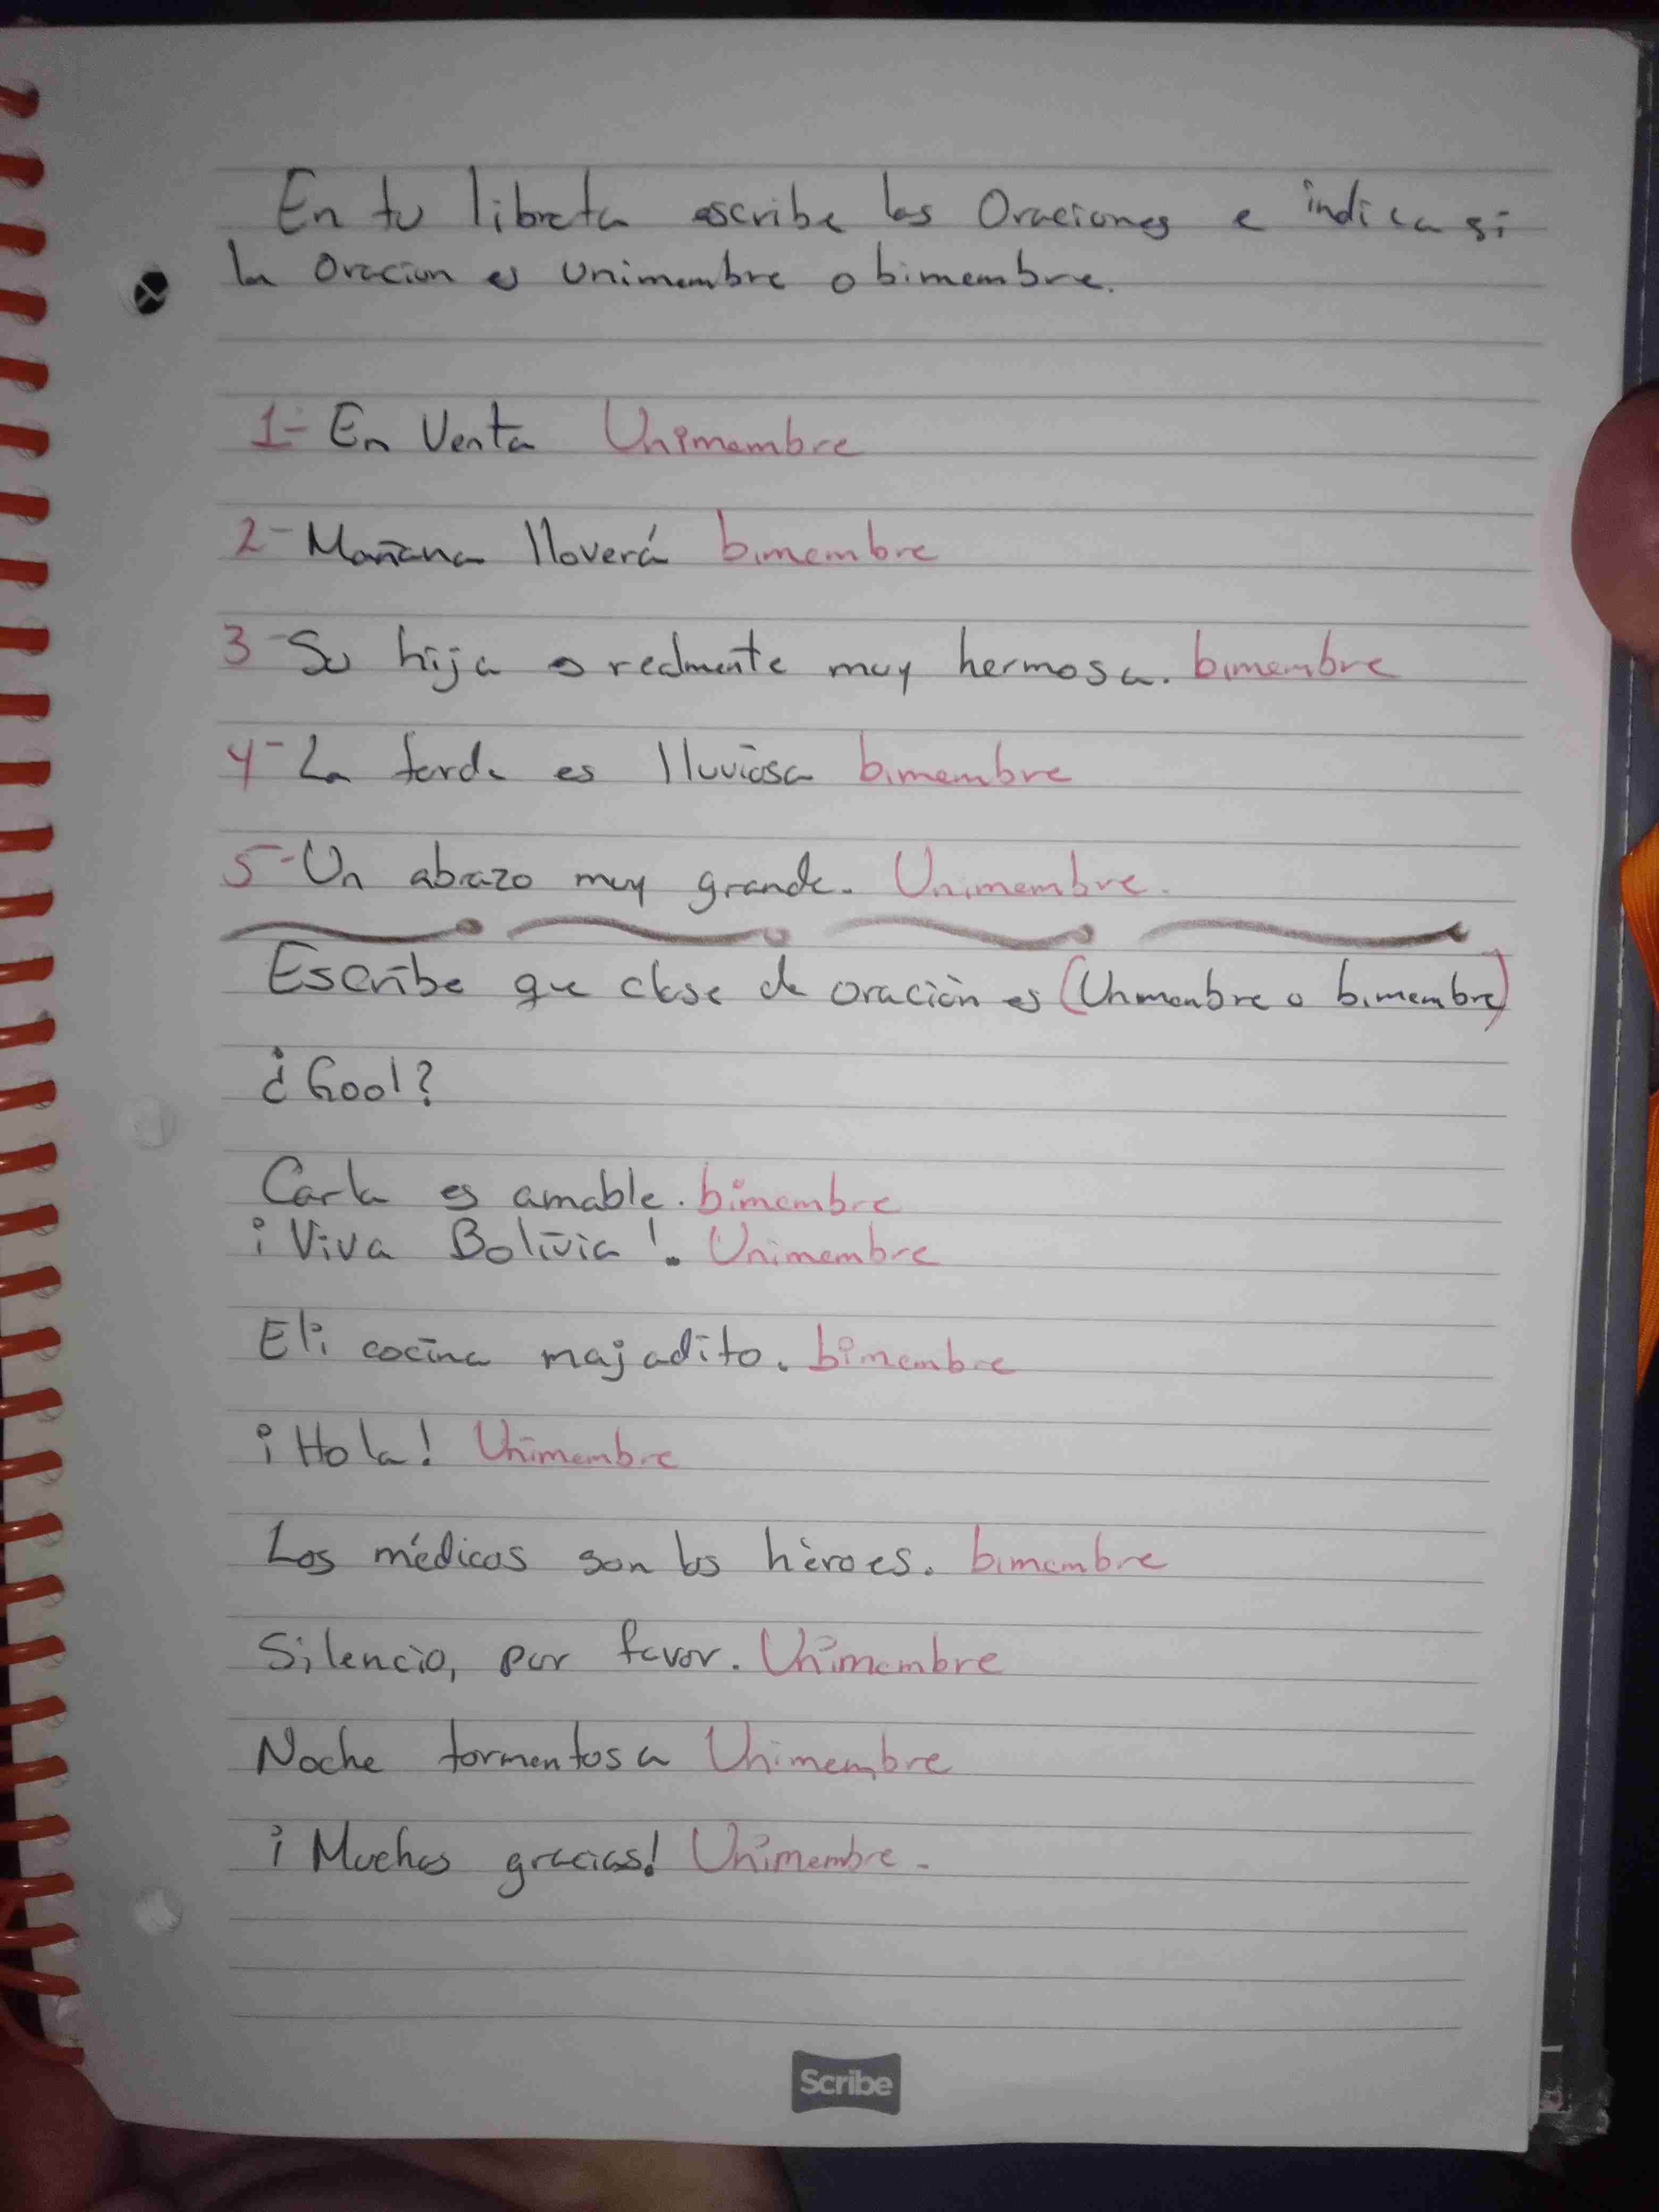 En tu libreta escribe las Oraciones e indica si
la Oracion es unimembre o bimembre.
1- En Venta Unimembre
2- Mañana lloverá bimembre
3- Su hija es realmente muy hermosa. bimembre
4- La tarde es lluviosa bimembre
5- Un abrazo muy grande. Unimembre.
Escribe que clase de oración es (Unimembre o bimembre)
¿Gool?
Carla es amable. bimembre
¡Viva Bolivia!. Unimembre
Eli cocina majadito. bimembre
¡Hola! Unimembre
Los médicos son los héroes. bimembre
Silencio, por favor. Unimembre
Noche tormentosa Unimembre
¡Muchas gracias! Unimembre.
Scribe